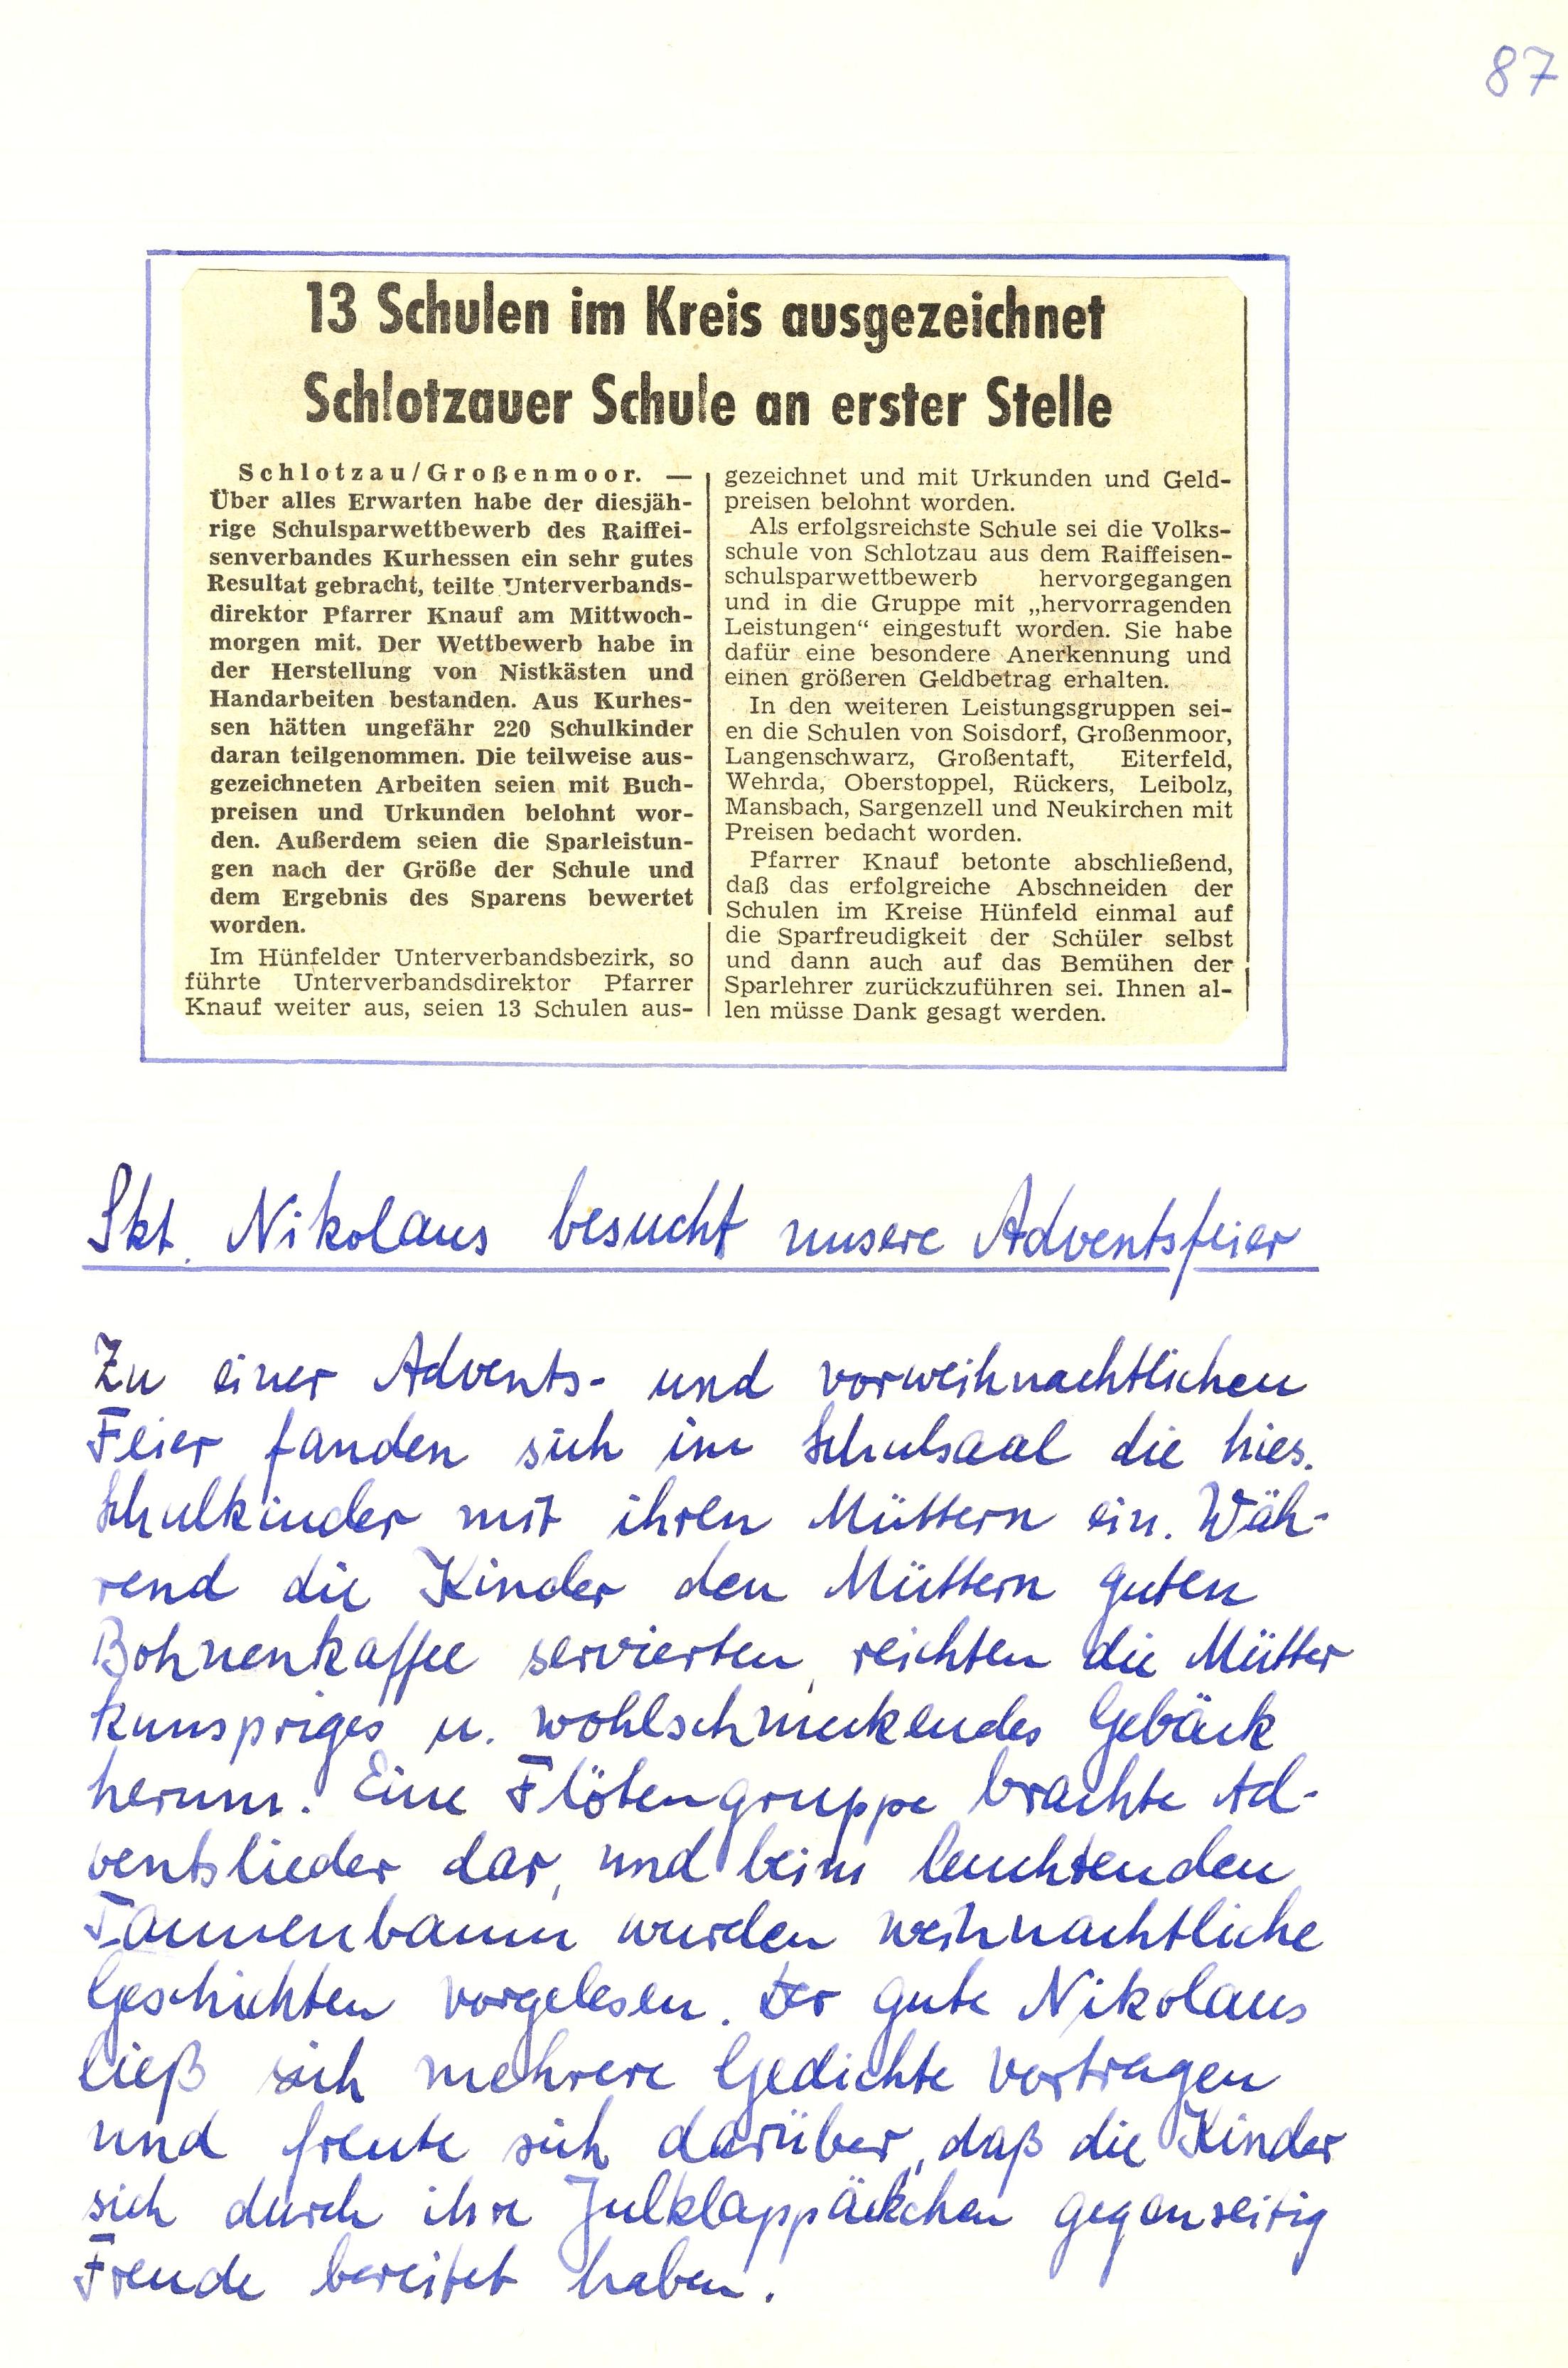 87
13 Schulen im Kreis ausgezeichnet
Schlotzauer Schule an erster Stelle
Schlotzau/Großenmoor. —
Über alles Erwarten habe der diesjäh-
rige Schulsparwettbewerb des Raiffei-
senverbandes Kurhessen ein sehr gutes
Resultat gebracht, teilte Unterverbands-
direktor Pfarrer Knauf am Mittwoch-
morgen mit. Der Wettbewerb habe in
der Herstellung von Nistkästen und
Handarbeiten bestanden. Aus Kurhes-
sen hätten ungefähr 220 Schulkinder
daran teilgenommen. Die teilweise aus-
gezeichneten Arbeiten seien mit Buch-
preisen und Urkunden belohnt wor-
den. Außerdem seien die Sparleistun-
gen nach der Größe der Schule und
dem Ergebnis des Sparens bewertet
worden.
Im Hünfelder Unterverbandsbezirk, so
führte Unterverbandsdirektor Pfarrer
Knauf weiter aus, seien 13 Schulen aus-
gezeichnet und mit Urkunden und Geld-
preisen belohnt worden.
Als erfolgsreichste Schule sei die Volks-
schule von Schlotzau aus dem Raiffeisen-
schulsparwettbewerb hervorgegangen
und in die Gruppe mit „hervorragenden
Leistungen“ eingestuft worden. Sie habe
dafür eine besondere Anerkennung und
einen größeren Geldbetrag erhalten.
In den weiteren Leistungsgruppen sei-
en die Schulen von Soisdorf, Großenmoor,
Langenschwarz, Großentaft, Eiterfeld,
Wehrda, Oberstoppel, Rückers, Leibolz,
Mansbach, Sargenzell und Neukirchen mit
Preisen bedacht worden.
Pfarrer Knauf betonte abschließend,
daß das erfolgreiche Abschneiden der
Schulen im Kreise Hünfeld einmal auf
die Sparfreudigkeit der Schüler selbst
und dann auch auf das Bemühen der
Sparlehrer zurückzuführen sei. Ihnen al-
len müsse Dank gesagt werden.
Skt. Nikolaus besucht unsere Adventsfeier
Zu einer Advents- und vorweihnachtlichen
Feier fanden sich im Schulsaal die hies.
Schulkinder mit ihren Müttern ein. Wäh-
rend die Kinder den Müttern guten
Bohnenkaffee servierten, reichten die Mütter
kunspriges u. wohlschmeckendes Gebäck
herum. Eine Flötengruppe brachte Ad-
ventslieder dar, und beim leuchtenden
Tannenbaum wurden weihnachtliche
Geschichten vorgelesen. Der gute Nikolaus
ließ sich mehrere Gedichte vortragen
und freute sich darüber, daß die Kinder
sich durch ihre Julklappäckchen gegenseitig
Freude bereitet haben.